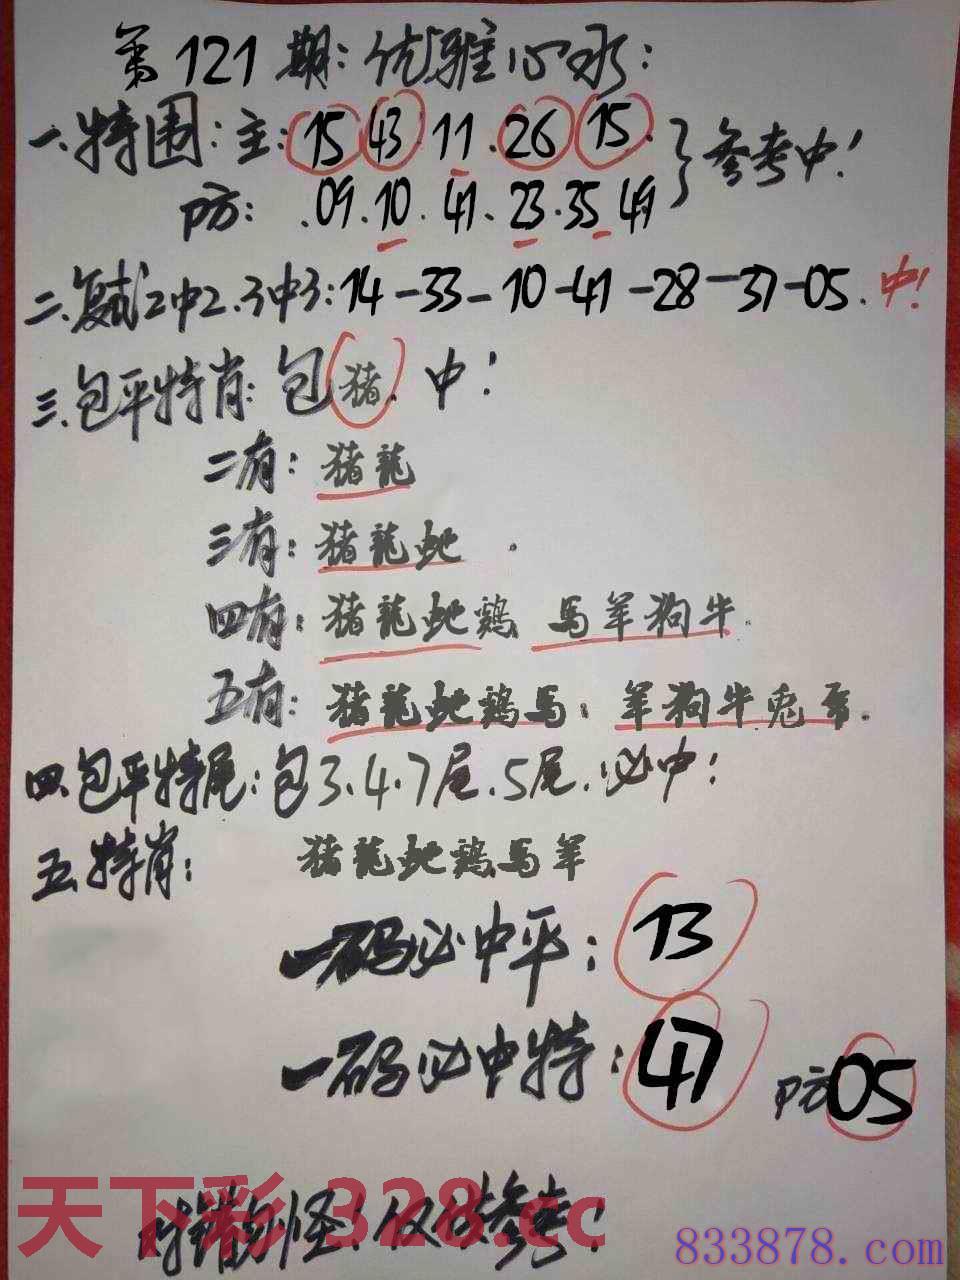 第121期:优雅心水:
一.特围:主:15.43.11.26.15.
防:.09.10.41.23.35.49
}参考中!
二.复试2中2.3中3:14-33-10-41-28-37-05.中!
三.包平特肖:包猪.中!
二有:猪龍
三有:猪龍蛇.
四有:猪龍蛇鶏 馬羊狗牛.
五有:猪龍蛇鶏馬:羊狗牛兎.
四.包平特尾:包3.4.7尾.5尾.必中!
五.特肖: 猪龍蛇鶏馬羊
一码必中平:13
一码必中特:47 防05
对错勿怪!仅供参考!
天下彩 328.cc
833878.com